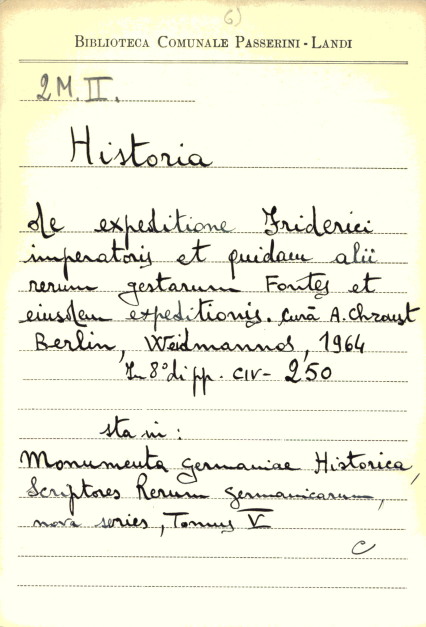 6)
BIBLIOTECA COMUNALE PASSERINI - LANDI
2M. II.
Historia
de expeditione Friderici
imperatoris et quidam alii
rerum gestarum Fontes et
eiusdem expeditionis. Curā A. Chroust
Berlin, Weidmannos, 1964
In 8° di pp. CIV - 250
sta in :
Monumenta Germaniae Historica,
Scriptores Rerum Germanicarum,
nova series, Tomus V
C